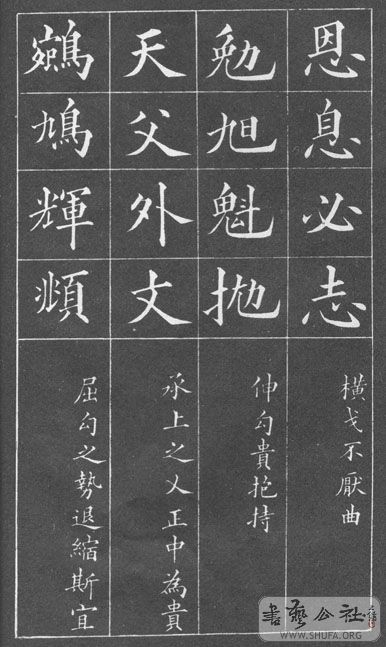 恩息必志
橫戈不厭曲
勉旭魁拋
伸勾貴抱持
天父外丈
承上之乂正中為貴
鵷鳩輝頫
屈勾之勢退縮斯宜
書藝公社
WWW.SHUFA.ORG